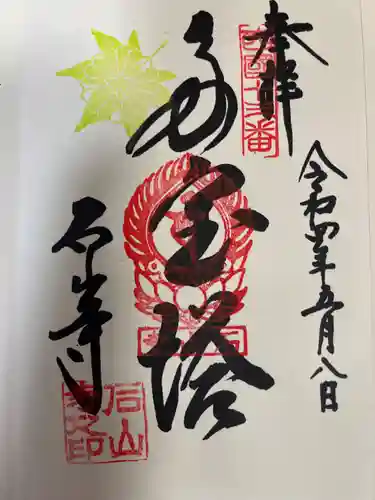 奉拝
西國十三番
令和四年五月八日
多宝塔
石山寺
石山寺之印